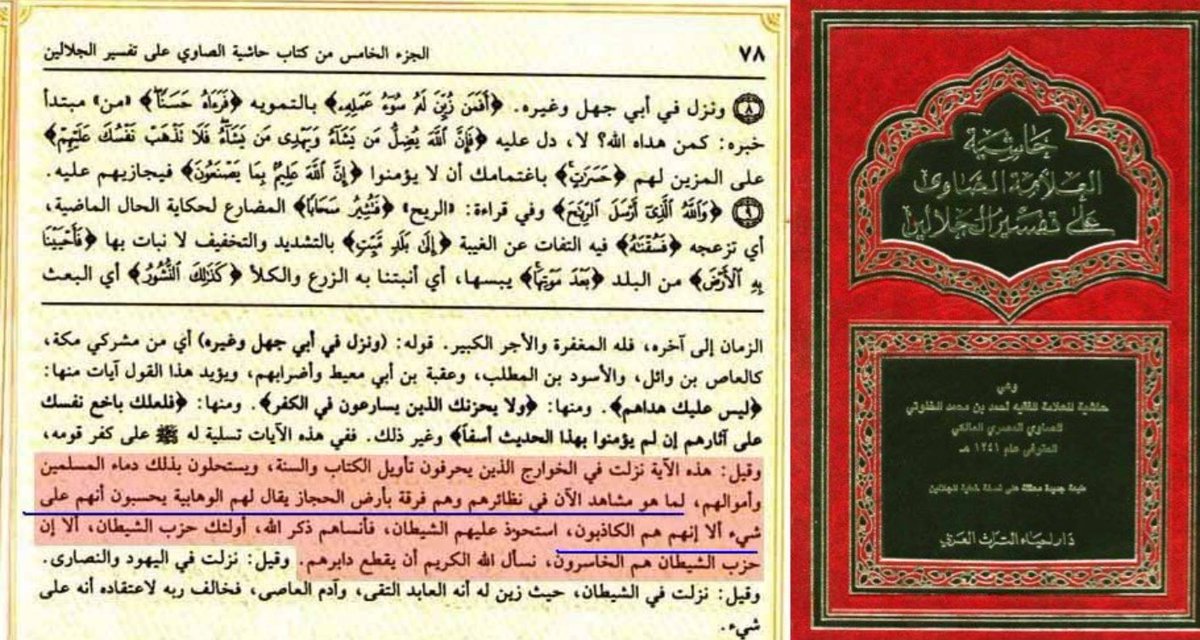 الجزء الخامس من كتاب حاشية الصاوي على تفسير الجلالين ٧٨
(٨) ونزل في أبي جهل وغيره. ﴿أَفَمَن زُيِّنَ لَهُ سُوءُ عَمَلِهِ﴾ بالتمويه ﴿فَرَءَاهُ حَسَنًا﴾ «من» مبتدأ
خبره: كمن هداه الله؟ لا، دل عليه ﴿فَإِنَّ اللَّهَ يُضِلُّ مَن يَشَاءُ وَيَهْدِي مَن يَشَاءُ فَلَا تَذْهَبْ نَفْسُكَ عَلَيْهِمْ﴾
على المزين لهم ﴿حَسَرَاتٍ﴾ باغتمامك أن لا يؤمنوا ﴿إِنَّ اللَّهَ عَلِيمٌ بِمَا يَصْنَعُونَ﴾ فيجازيهم عليه.
(٩) ﴿وَاللَّهُ الَّذِي أَرْسَلَ الرِّيَاحَ﴾ وفي قراءة: «الريح» ﴿فَتُثِيرُ سَحَابًا﴾ المضارع لحكاية الحال الماضية،
أي تزعجه ﴿فَسُقْنَاهُ﴾ فيه التفات عن الغيبة ﴿إِلَى بَلَدٍ مَّيِّتٍ﴾ بالتشديد والتخفيف لا نبات بها ﴿فَأَحْيَيْنَا
بِهِ الْأَرْضَ﴾ من البلد ﴿بَعْدَ مَوْتِهَا﴾ يبسها، أي أنبتنا به الزرع والكلأ ﴿كَذَلِكَ النُّشُورُ﴾ أي البعث
الزمان إلى آخره، فله المغفرة والأجر الكبير. قوله: (ونزل في أبي جهل وغيره) أي من مشركي مكة،
كالعاص بن وائل، والأسود بن المطلب، وعقبة بن أبي معيط وأضرابهم، ويؤيد هذا القول آيات منها:
﴿ليس عليك هداهم﴾. ومنها: ﴿ولا يحزنك الذين يسارعون في الكفر﴾. ومنها: ﴿فلعلك باخع نفسك
على آثارهم إن لم يؤمنوا بهذا الحديث أسفاً﴾ وغير ذلك. ففي هذه الآيات تسلية له ﷺ على كفر قومه،
وقيل: هذه الآية نزلت في الخوارج الذين يحرفون تأويل الكتاب والسنة، ويستحلون بذلك دماء المسلمين
وأموالهم، لما هو مشاهد الآن في نظائرهم وهم فرقة بأرض الحجاز يقال لهم الوهابية يحسبون أنهم على
شيء ألا إنهم هم الكاذبون، استحوذ عليهم الشيطان، فأنساهم ذكر الله، أولئك حزب الشيطان، ألا إن
حزب الشيطان هم الخاسرون، نسأل الله الكريم أن يقطع دابرهم. وقيل: نزلت في اليهود والنصارى.
وقيل: نزلت في الشيطان، حيث زين له أنه العابد التقى، وآدم العاصي، فخالف ربه لاعتقاده أنه على
شيء.
حاشية
العلامة الصاوي
على تفسير الجلالين
وهي
حاشية للعلامة الفقيه أحمد بن محمد الخلوتي
الصاوي المصري المالكي
المتوفى عام ١٢٤١ هـ
طبعة جديدة
دار إحياء التراث العربي